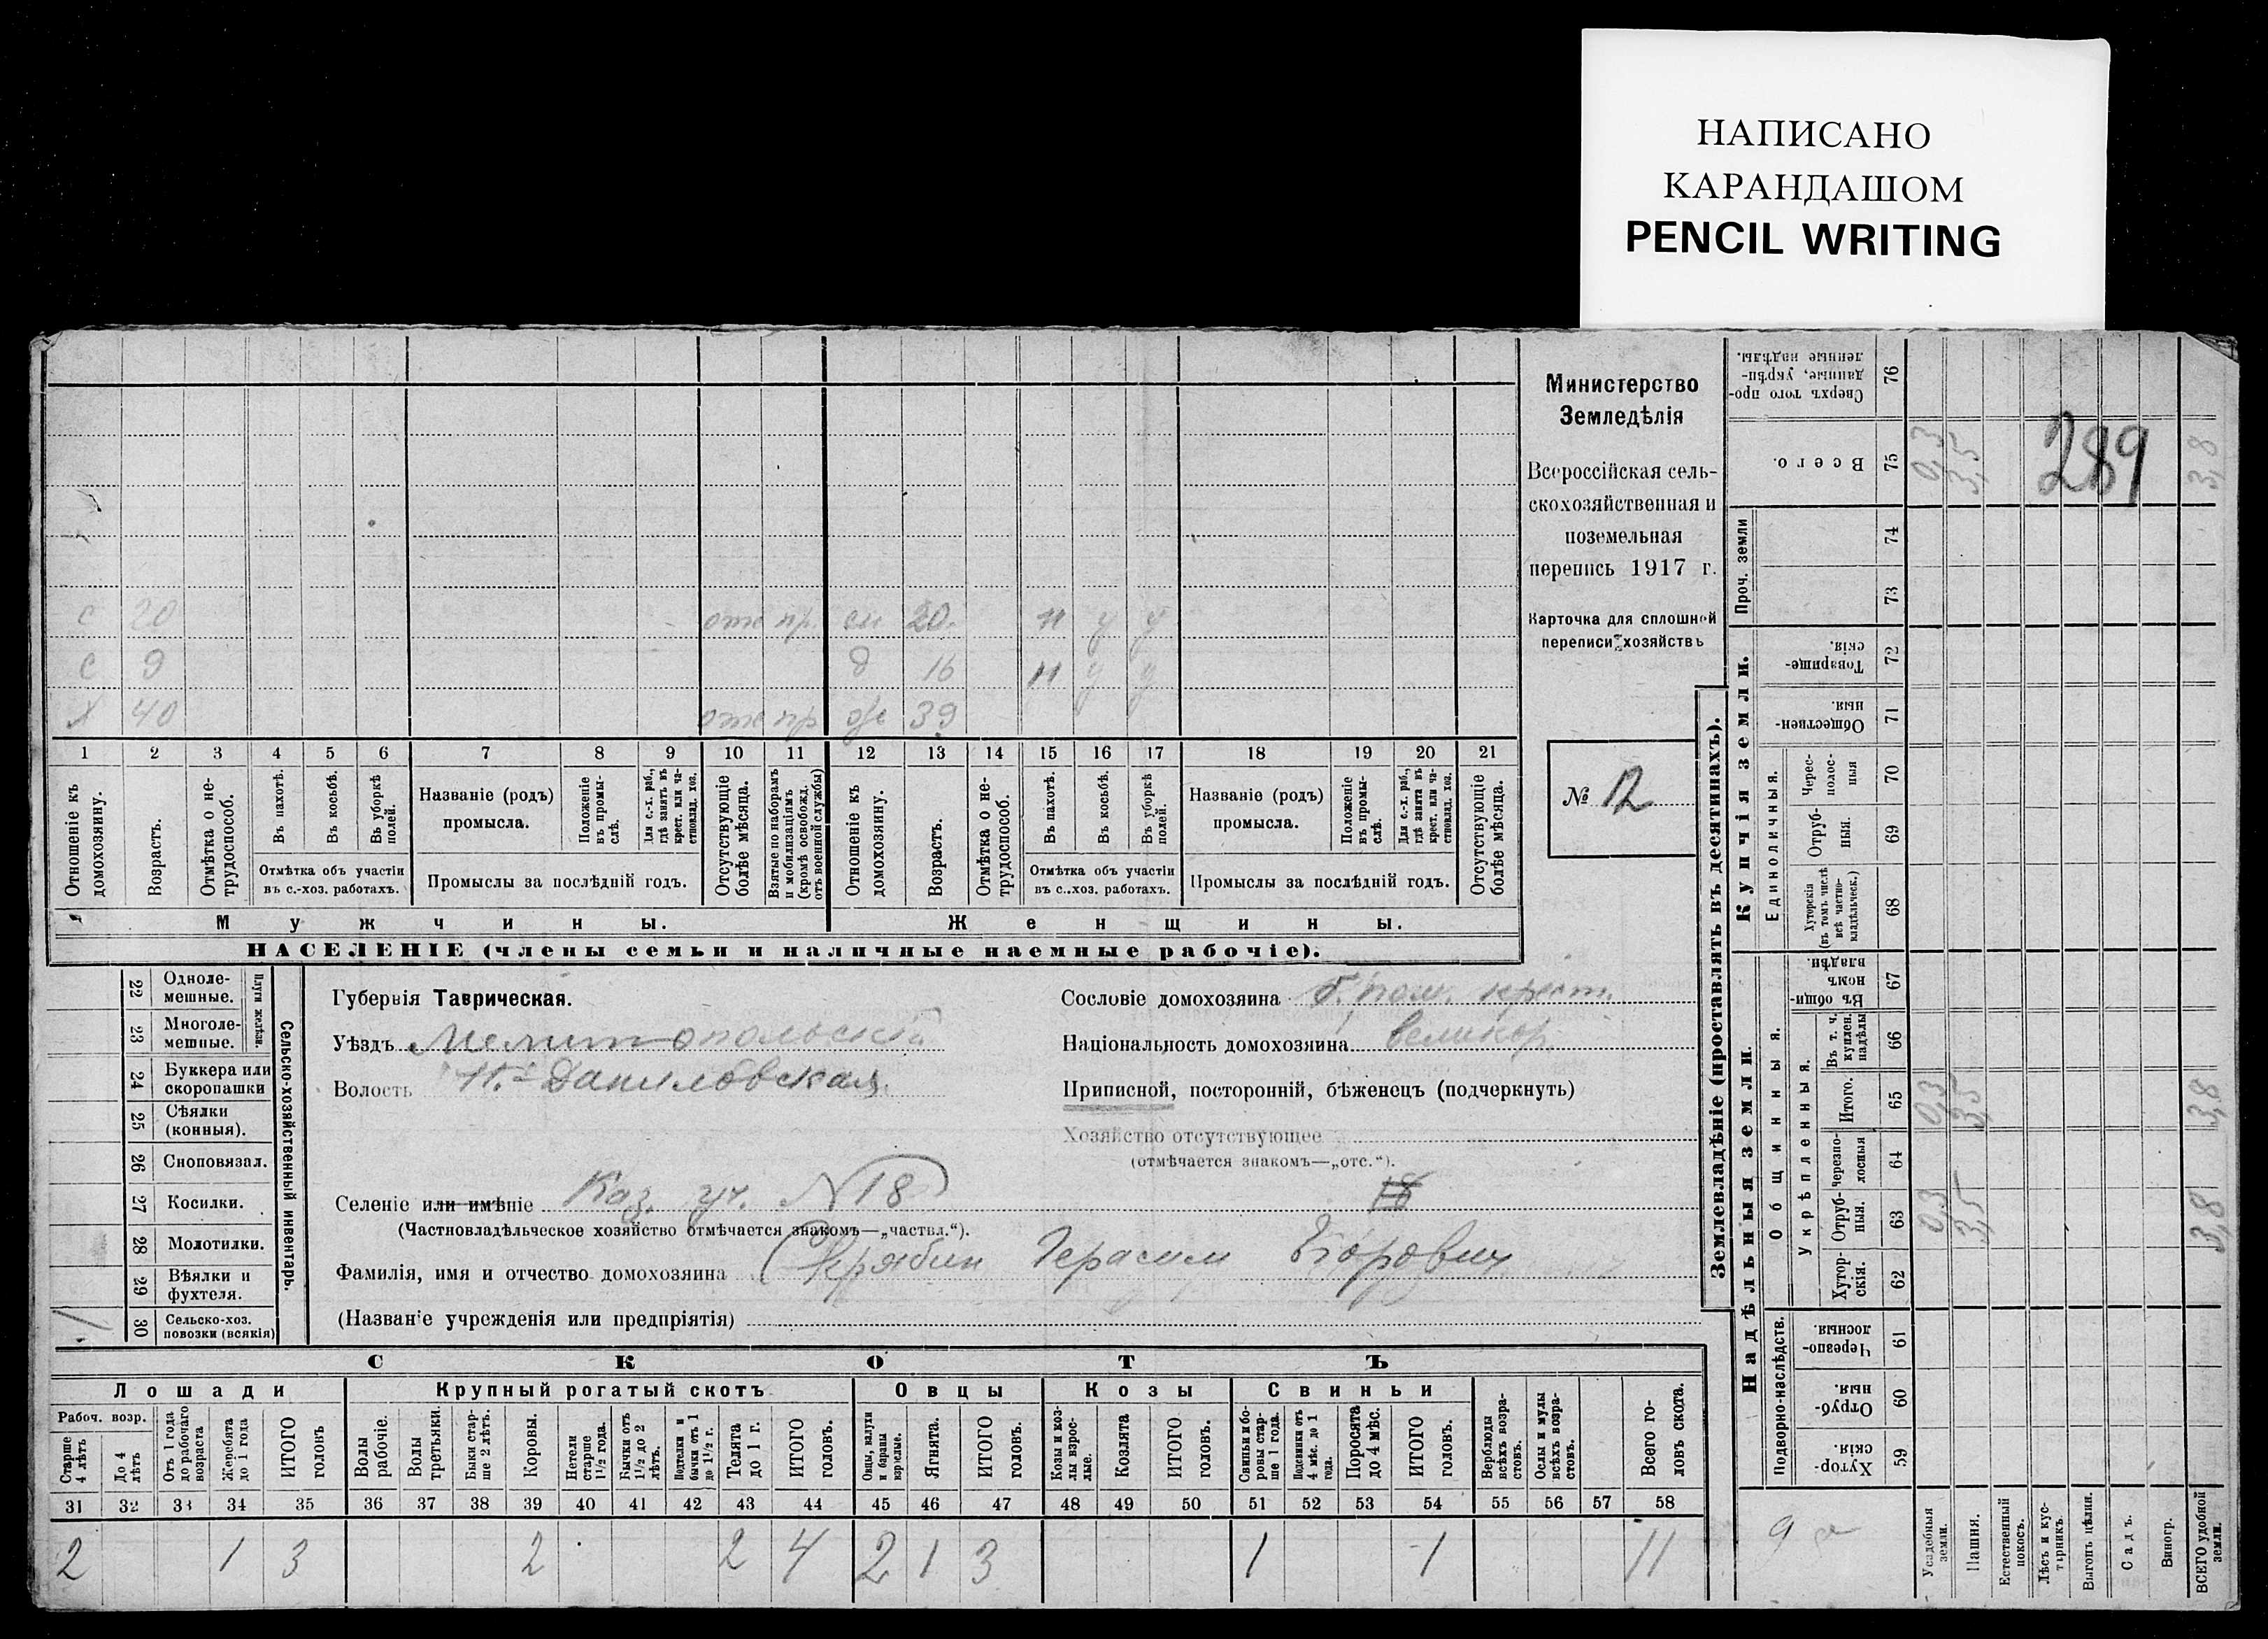 НАПИСАНО
КАРАНДАШОМ
PENCIL WRITING
Министерство
Земледѣлія
Всероссійская сель-
скохозяйственная и
поземельная
перепись 1917 г.
Карточка для сплошной
переписи хозяйствъ
№ 12
289
с 20 отс пр. сн 20. н у у
с 9 д 16 н у у
х 40 отс пр ж 39
1 2 3 4 5 6 7 8 9 10 11 12 13 14 15 16 17 18 19 20 21
Отношеніе къ домохозяину.
Возрастъ.
Отмѣтка о не-трудоспособ.
Въ пахотѣ.
Въ косьбѣ.
Въ уборкѣ полей.
Отмѣтка объ участіи
въ с.-хоз. работахъ.
Названіе (родъ)
промысла.
Положеніе въ промы-слѣ.
Для с.-х. раб., гдѣ занятъ въ крест. или ча-стновлад. хоз.
Промыслы за послѣдній годъ.
Отсутствующіе болѣе мѣсяца.
Взятые по наборамъ и мобилизаціямъ (кромѣ освобожд. отъ военной службы)
Отношеніе къ домохозяину.
Возрастъ.
Отмѣтка о не-трудоспособ.
Въ пахотѣ.
Въ косьбѣ.
Въ уборкѣ полей.
Отмѣтка объ участіи
въ с..хоз. работахъ.
Названіе (родъ)
промысла.
Положеніе въ промы-слѣ.
Для с.-х. раб., гдѣ занята въ крест. или ча-стновлад. хоз.
Промыслы за послѣдній годъ.
Отсутствующіе болѣе мѣсяца.
Мужчины. Женщины.
НАСЕЛЕНІЕ (члены семьи и наличные наемные рабочіе).
Сельско-хозяйственный инвентарь.
Плуги желѣзн.
22 Одноле-
мешные.
23 Многоле-
мешные.
24 Буккера или
скоропашки
25 Сѣялки
(конныя).
26 Сноповязал.
27 Косилки.
28 Молотилки.
29 Вѣялки и
фухтеля.
1 30 Сельско-хоз.
повозки (всякія)
Губернія Таврическая.
Уѣздъ Мелитопольскій
Волость Н.-Даниловская
Сословіе домохозяина б. пом. крест.
Національность домохозяина великор.
Приписной, посторонній, бѣженецъ (подчеркнуть)
Хозяйство отсутствующее
(отмѣчается знакомъ—„отс.“).
Селеніе или имѣніе Каз. уч. N18 18
(Частновладѣльческое хозяйство отмѣчается знакомъ—„частвл.“).
Фамилія, имя и отчество домохозяина Скрябин Герасим Егорович
(Названіе учрежденія или предпріятія)
СКОТЪ
Лошади Крупный рогатый скотъ Овцы Козы Свиньи
Рабоч. возр.
Старше 4 лѣтъ
До 4 лѣтъ
Отъ 1 года до рабочаго возраста
Жеребята до 1 года
ИТОГО головъ
Волы рабочіе.
Волы третьяки.
Быки стар-ше 2 лѣтъ.
Коровы.
Нетели старше 1½ года.
Бычки отъ 1½ до 2 лѣтъ.
Подтелки и бычки отъ 1 до 1½ г.
Телята до 1 г.
ИТОГО головъ.
Овцы, валухи и бараны взрослые.
Ягнята.
ИТОГО головъ.
Козы и коз-лы взрос-лые.
Козлята
ИТОГО головъ.
Свиньи и бо-ровы стар-ше 1 года.
Подсвинки отъ 4 мѣс. до 1 года.
Поросята до 4 мѣс.
ИТОГО головъ.
Верблюды всѣхъ возра-стовъ.
Ослы и мулы всѣхъ возра-стовъ.
Всего го-ловъ скота.
31 32 33 34 35 36 37 38 39 40 41 42 43 44 45 46 47 48 49 50 51 52 53 54 55 56 57 58
2 1 3 2 2 4 2 1 3 1 1 11
Землевладѣніе (проставлять въ десятинахъ).
Надѣльныя земли.
Купчія земли.
Проч. земли
Подворно-наслѣдств.
Общинныя.
Укрѣпленныя.
Единоличныя.
Сверхъ того про-
данные, укрѣп-
ленные надѣлы. 76
Всего. 75 0,3 3,5 3,8
74
73
Товарище-
скія. 72
Обществен-
ныя. 71
Черес-полос-ныя 70
Отруб-ныя. 69
Хуторскія (въ томъ числѣ всѣ частно-владѣльческ.) 68
Въ общин-
номъ
владѣн. 67
Въ т. ч. куплен. надѣлы 66
Итого. 65 0,3 3,5 3,8
черезпо-лосныя 64
Отруб-ныя. 63 0,3 3,5 3,8
Хутор-скія. 62
Черезпо-
лосныя. 61
Отруб-
ныя. 60
Хутор-
скія. 59
Усадебныя земли.
Пашня.
Естественный покосъ.
Лѣсъ и кус-тарникъ.
Выгонъ цѣлин.
Садъ.
Виногр.
ВСЕГО удобной земли.